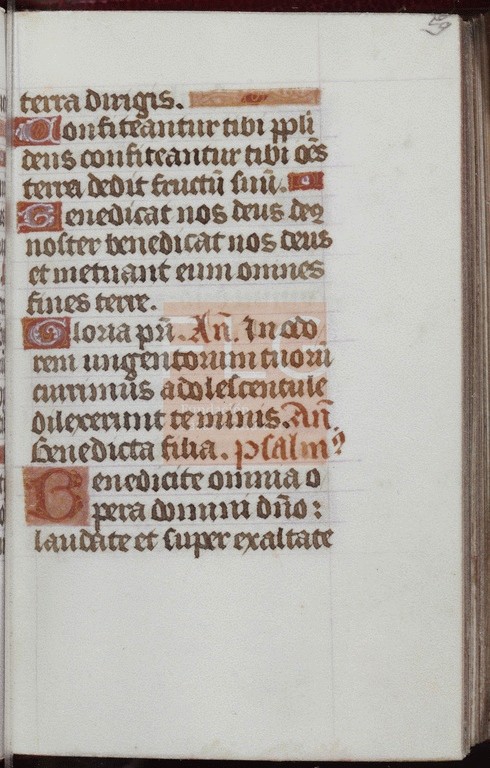 terra dirigis.
Confiteantur tibi ppli
deus confiteantur tibi oēs
terra dedit fructū suū.
Benedicat nos deus deꝰ
noster benedicat nos deus
et metuant eum omnes
fines terre.
Gloria pr̄i. Añ. In odo
rem ungentorum tuorū
currimus adolescentule
dilexerunt te nimis. Añ.
Benedicta filia. psalmꝰ
Benedicite omnia o
pera domini dn̄o:
laudate et super exaltate